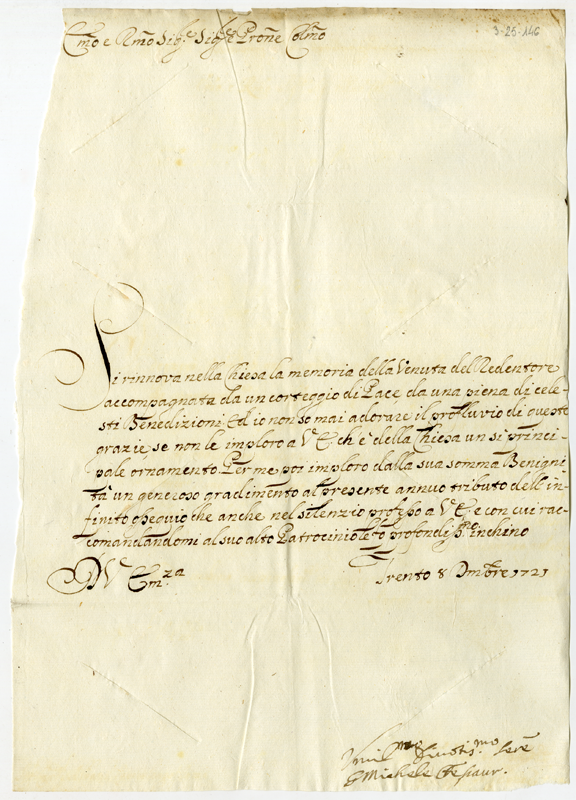 Em͞o e Rm͞o Sig.r Sig.r e Pron͞e Colm͞o
3-25-146
Si rinnova nella Chiesa la memoria della Venuta del Redentore
accompagnata da un corteggio di Pace da una piena di cele-
sti Benedizioni, Ed io non so mai adorare il profluvio di queste
grazie se non le imploro a V.E. ch'è della Chiesa un sì princi-
pale ornamento. Per me poi imploro dalla sua somma Benigni
tà un generoso gradimento al presente annuo tributo dell'in-
finito ossequio che anche nel silenzio professo a V.E. e con cui rac-
comandandomi al suo alto Patrocinio profondis. inchino
D V Em.za
Trento 8 Dmbre 1721
Umil.mo Divotis.mo Serē
G Michele